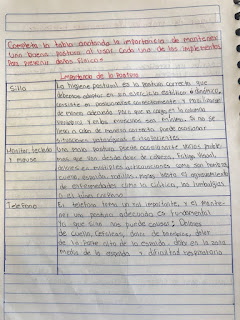 Completa la tabla anotando la importancia de mantener
una buena postura al usar cada uno de los implementos
Para prevenir daños físicos
Importancia de la Postura
Silla
La higiene postural es la postura correcta que
debemos adoptar en un ejercicio estático o dinámico,
consiste en posicionarnos correctamente y movilizarse
de manera adecuada para que la carga en la columna
vertebral y en los músculos sea mínima. Si no se
lleva a cabo de manera correcta puede ocasionar
situaciones patológicas e invalidantes
Monitor, teclado
y mouse
Una mala postura puede ocasionarte varios problemas
que van desde dolor de cabeza, fatiga visual,
dolores en múltiples articulaciones como son hombros
cuello, espalda, rodillas, manos, hasta el agravamiento
de enfermedades como la ciática, las lumbalgias
o el túnel carpiano
Telefono
El telefono tiene un rol importante, y el mantener
una postura adecuada es fundamental
ya que sino nos puede causar: Dolores
de cuello cervicales, dolor de hombros, dolor
de la parte alta de la espalda, dolor en la zona
media de la espalda y dificultad respiratoria